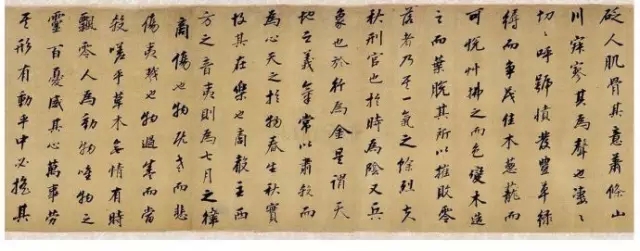 砭人肌骨其意蕭條山
川寂寥其為聲也淒淒
切切呼號憤發豐草綠
縟而爭茂佳木葱蘢而
可悅草拂之而色變木遭
之而葉脫其所以摧敗零
落者乃其一氣之餘烈夫
秋刑官也於時為陰又兵
象也於行為金是謂天
地之義氣常以肅殺而
為心天之於物春生秋實
故其在樂也商聲主西
方之音夷則為七月之律
商傷也物既老而悲
傷夷戮也物過盛而當
殺嗟乎草木無情有時
飄零人為動物唯物之
靈百憂感其心萬事勞
其形有動乎中必搖其